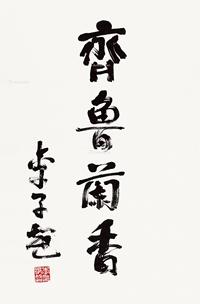 齊魯蘭香
李子超